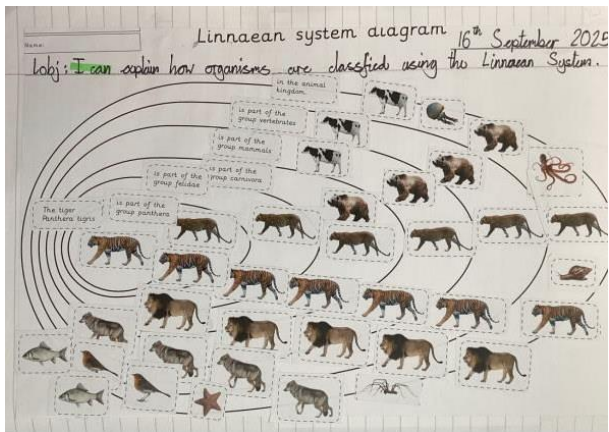 Name:
Linnaean system diagram
16th September 2025
Lobj: I can explain how organisms are classfied using the Linnaean System.
in the animal
kingdom.
is part of the
group vertebrates
is part of the
group mammals
is part of the
group carnivora
is part of the
group felidae
is part of the
group panthera
The tiger
Panthera tigris